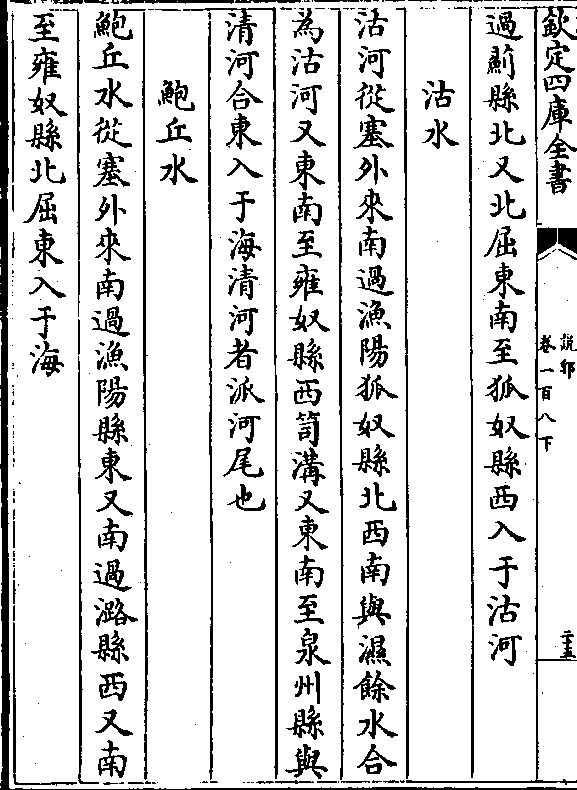 欽定四庫全書
說郛
卷一百八下
二十五
過薊縣北又北屈東南至狐奴縣西入于沽河
沽水
沽河從塞外來南過漁陽狐奴縣北西南與濕餘水合
為沽河又東南至雍奴縣西笥溝又東南至泉州縣與
清河合東入于海清河者派河尾也
鮑丘水
鮑丘水從塞外來南過漁陽縣東又南過潞縣西又南
至雍奴縣北屈東入于海